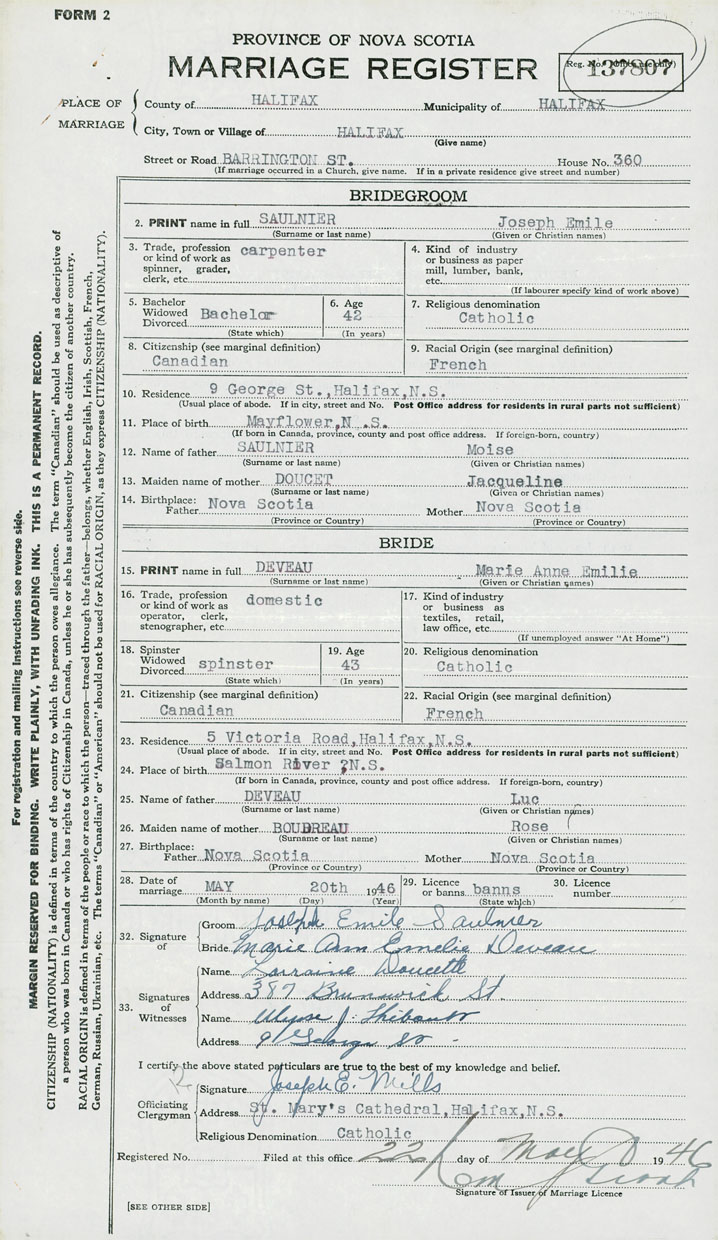 FORM 2
PROVINCE OF NOVA SCOTIA
MARRIAGE REGISTER
Reg. No. 137807
PLACE OF MARRIAGE
County of HALIFAX Municipality of HALIFAX
City, Town or Village of HALIFAX
(Give name)
Street or Road BARRINGTON ST. House No. 360
(If marriage occurred in a Church, give name. If in a private residence give street and number)
BRIDEGROOM
2. PRINT name in full SAULNIER Joseph Emile
(Surname or last name) (Given or Christian names)
3. Trade, profession or kind of work as spinner, grader, clerk, etc. carpenter
4. Kind of industry or business as paper mill, lumber, bank, etc.
(If labourer specify kind of work above)
5. Bachelor Widowed Divorced Bachelor
(State which)
6. Age 42
(In years)
7. Religious denomination
Catholic
8. Citizenship (see marginal definition)
Canadian
9. Racial Origin (see marginal definition)
French
10. Residence 9 George St., Halifax, N.S.
(Usual place of abode. If in city, street and No. Post Office address for residents in rural parts not sufficient)
11. Place of birth Mayflower, N .S.
(If born in Canada, province, county and post office address. If foreign-born, country)
12. Name of father SAULNIER Moise
(Surname or last name) (Given or Christian names)
13. Maiden name of mother DOUCET Jacqueline
(Surname or last name) (Given or Christian names)
14. Birthplace: Father Nova Scotia Mother Nova Scotia
(Province or Country) (Province or Country)
BRIDE
15. PRINT name in full DEVEAU Marie Anne Emilie
(Surname or last name) (Given or Christian names)
16. Trade, profession or kind of work as operator, clerk, stenographer, etc. domestic
17. Kind of industry or business as textiles, retail, law office, etc.
(If unemployed answer "At Home")
18. Spinster Widowed Divorced spinster
(State which)
19. Age 43
(In years)
20. Religious denomination
Catholic
21. Citizenship (see marginal definition)
Canadian
22. Racial Origin (see marginal definition)
French
23. Residence 5 Victoria Road, Halifax, N.S.
(Usual place of abode. If in city, street and No. Post Office address for residents in rural parts not sufficient)
24. Place of birth Salmon River ?N.S.
(If born in Canada, province, county and post office address. If foreign-born, country)
25. Name of father DEVEAU Luc
(Surname or last name) (Given or Christian names)
26. Maiden name of mother BOUDREAU Rose
(Surname or last name) (Given or Christian names)
27. Birthplace: Father Nova Scotia Mother Nova Scotia
(Province or Country) (Province or Country)
28. Date of marriage MAY 20th 1946
(Month by name) (Day) (Year)
29. Licence or banns banns
(State which)
30. Licence number
32. Signature of
Groom Joseph Emile Saulnier
Bride Marie Ann Emelie Deveau
33. Signatures of Witnesses
Name Lorraine Doucette
Address 387 Brunswick St.
Name Ulysse J. Thibault
Address 9 George St
I certify the above stated particulars are true to the best of my knowledge and belief.
Officiating Clergyman
Signature Joseph E. Mills
Address St. Mary's Cathedral, Halifax, N.S.
Religious Denomination Catholic
Registered No. Filed at this office 22 day of May 1946
Signature of Issuer of Marriage Licence
[SEE OTHER SIDE]
For registration and mailing instructions see reverse side.
MARGIN RESERVED FOR BINDING. WRITE PLAINLY, WITH UNFADING INK. THIS IS A PERMANENT RECORD.
CITIZENSHIP (NATIONALITY) is defined in terms of the country to which the person owes allegiance. The term "Canadian" should be used as descriptive of
a person who was born in Canada or who has rights of Citizenship in Canada, unless he or she has subsequently become the citizen of another country.
RACIAL ORIGIN is defined in terms of the people or race to which the person—traced through the father—belongs, whether English, Irish, Scottish, French,
German, Russian, Ukrainian, etc. The terms "Canadian" or "American" should not be used for RACIAL ORIGIN, as they express CITIZENSHIP (NATIONALITY).